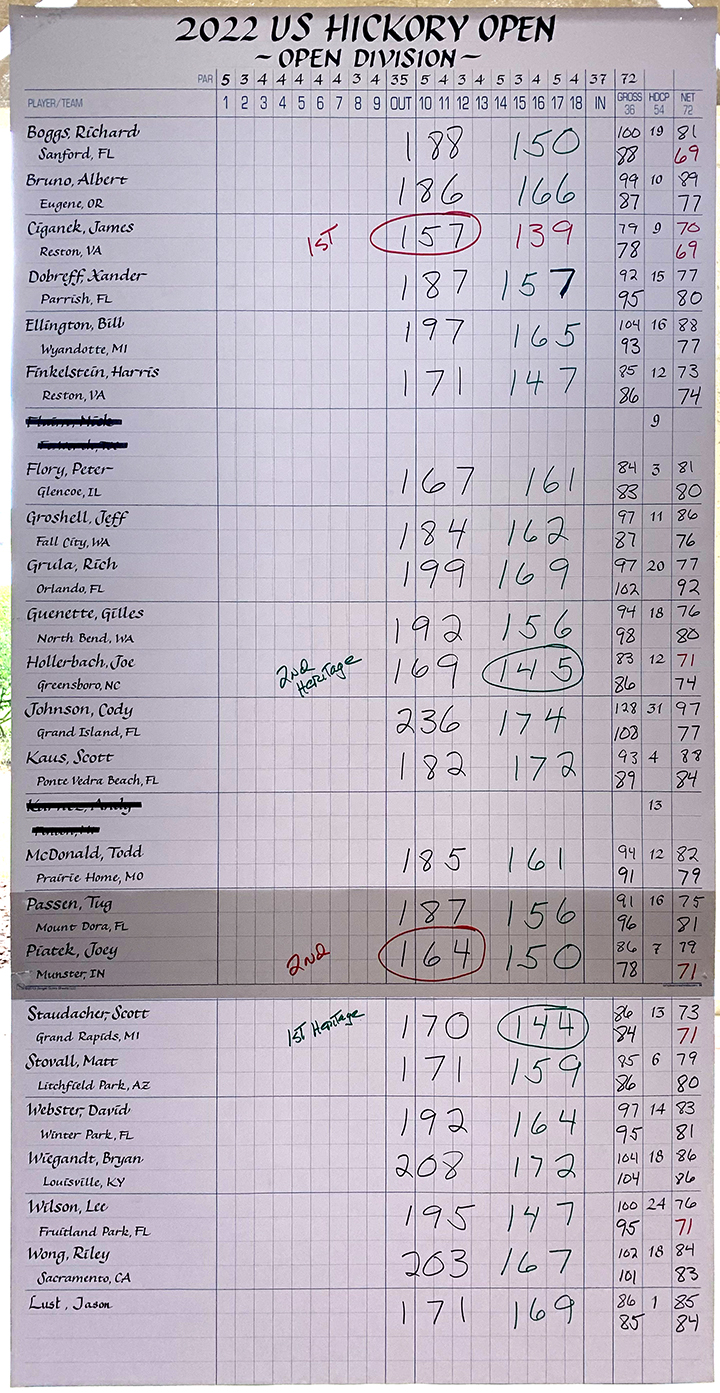 2022 US HICKORY OPEN
~ OPEN DIVISION ~
PAR 5 3 4 4 4 4 4 3 4 35 5 4 3 4 4 3 4 5 4 37 72
PLAYER/TEAM 1 2 3 4 5 6 7 8 9 OUT 10 11 12 13 14 15 16 17 18 IN GROSS 36 HDCP 54 NET 72
Boggs, Richard 188 150 100 19 81
Sanford, FL 88 69
Bruno, Albert 186 166 99 10 89
Eugene, OR 87 77
Ciganek, James 1ST 157 139 79 9 70
Reston, VA 78 69
Dobreff, Xander 187 157 92 15 77
Parrish, FL 95 80
Ellington, Bill 197 165 104 16 88
Wyandotte, MI 93 77
Finkelstein, Harris 171 147 85 12 73
Reston, VA 86 74
9
Flory, Peter 167 161 84 3 81
Glencoe, IL 83 80
Groshell, Jeff 184 162 97 11 86
Fall City, WA 87 76
Grula, Rich 199 169 97 20 77
Orlando, FL 102 92
Guenette, Gilles 192 156 94 18 76
North Bend, WA 98 80
Hollerbach, Joe 2ND Heritage 169 145 83 12 71
Greensboro, NC 86 74
Johnson, Cody 236 174 128 31 97
Grand Island, FL 108 77
Kaus, Scott 182 172 93 4 88
Ponte Vedra Beach, FL 89 84
13
McDonald, Todd 185 161 94 12 82
Prairie Home, MO 91 79
Passen, Tug 187 156 91 16 75
Mount Dora, FL 96 81
Piatek, Joey 2ND 164 150 86 7 79
Munster, IN 78 71
Staudacher, Scott 1ST Heritage 170 144 86 13 73
Grand Rapids, MI 84 71
Stovall, Matt 171 159 85 6 79
Litchfield Park, AZ 86 80
Webster, David 192 164 97 14 83
Winter Park, FL 95 81
Wiegandt, Bryan 208 172 104 18 86
Louisville, KY 104 86
Wilson, Lee 195 147 100 24 76
Fruitland Park, FL 95 71
Wong, Riley 203 167 102 18 84
Sacramento, CA 101 83
Lust, Jason 171 169 86 1 85
85 84